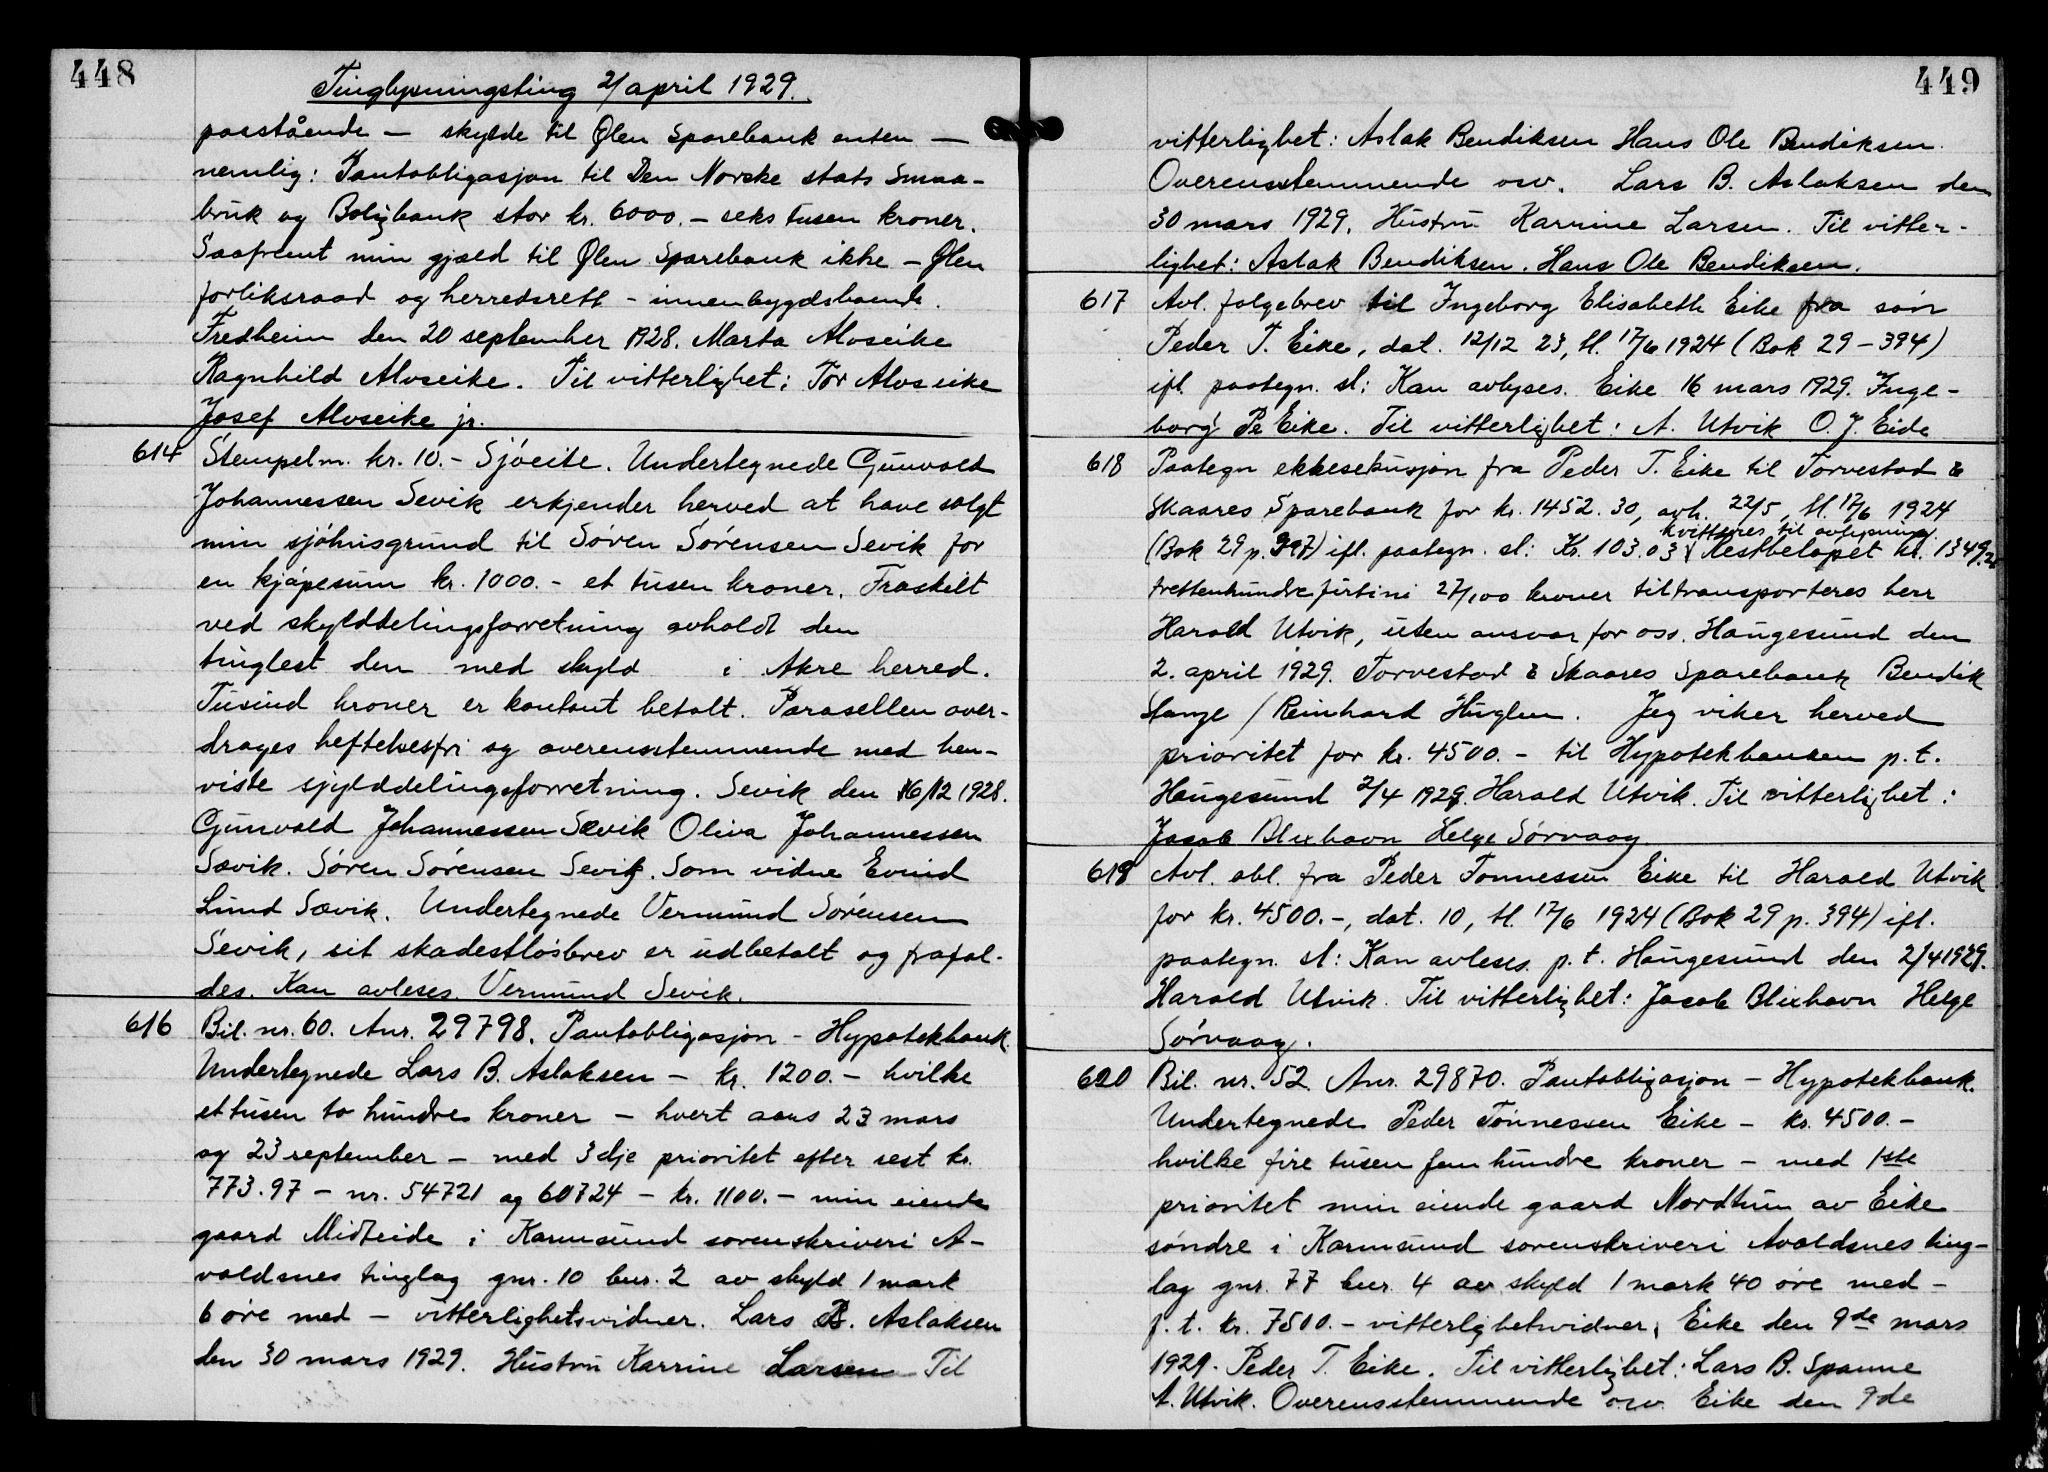 448
Tinglysningsting 2/april 1929.
paastående — skylde til Ølen Sparebank enten —
nemlig: Pantobligasjon til Den Norske stats Smaa-
bruk og Boligbank stor kr. 6000.- seks tusen kroner.
Saafremt min gjæld til Ølen Sparebank ikke - Ølen
forliksraad og herredsrett - innenbygdsboende.
Fredheim den 20 september 1928. Marta Alvseike
Ragnhild Alvseike. Til vitterlighet: Tor Alvseike
Josef Alvseike jr.
614 Stempelm. kr. 10.- Sjöeite. Undertegnede Gunvald
Johannessen Sevik erkjender herved at have solgt
min sjöhusgrund til Sören Sörensen Sevik for
en kjöpesum kr. 1000.- et tusen kroner. Fraskilt
ved skylddelingsforretning avholdt den
tinglest den med skyld i Akre herred.
Tusind kroner er kontant betalt. Parasellen over-
drages heftelsesfri og overensstemmende med hen-
viste sjylddelingsforretning. Sevik den 16/12 1928.
Gunvald Johannessen Sævik Oliva Johannessen
Sævik. Sören Sörensen Sevik. Som vidne Evind
Lund Sævik. Undertegnede Vermund Sörensen
Sevik, sit skadeslösbrev er udbetalt og frafal-
des. Kan avleses. Vermund Sevik.
616 Bil. nr. 60. Anr. 29798. Pantobligasjon - Hypotekbank.
Undertegnede Lars B. Aslaksen - kr. 1200.- hvilke
ettusen to hundre kroner - hvert aars 23 mars
og 23 september - med 3dje prioritet efter rest kr.
773.97 - nr. 54721 og 60724 - kr. 1100.- min eiende
gaard Midteide i Karmsund sorenskriveri A-
valdsnes tinglag gnr. 10 bnr. 2 av skyld 1 mark
6 öre med - vitterlighetsvidner. Lars B. Aslaksen
den 30 mars 1929. Hustru Karrine Larsen Til
449
vitterlighet: Aslak Bendiksen Hans Ole Bendiksen.
Overensstemmende osv. Lars B. Aslaksen den
30 mars 1929. Hustru Karrine Larsen. Til vitter-
lighet: Aslak Bendiksen. Hans Ole Bendiksen.
617 Avl. folgebrev til Ingeborg Elisabeth Eike fra sön
Peder T. Eike, dat. 12/12 23, tl. 17/6 1924 (Bok 29-394)
ifl. paategn. sl: Kan avlyses. Eike 16 mars 1929. Inge-
borg Pe Eike. Til vitterlighet: A. Utvik O. J. Eide
618 Paategn ekkesekusjon fra Peder T. Eike til Torvestad &
Skaares Sparebank for kr. 1452.30, avh. 22/5, tl. 17/6 1924
kvitteres til avlysning.
(Bok 29 p. 397) ifl. paategn. sl: Kr. 103.03 Restbelöpet kr. 1349.27
trettenhundre förtini 27/100 kroner tiltransporteres herr
Harald Utvik, uten ansvar for oss. Haugesund den
2. april 1929. Torvestad & Skaares Sparebank Bendik
Stange / Reinhard Huglen. Jeg viker herved
prioritet for kr. 4500.- til Hypotekbanken p.t.
Haugesund 2/4 1929. Harald Utvik. Til vitterlighet:
Jacob Blixhavn Helge Sörvaag.
619 Avl. obl. fra Peder Tonnessen Eike til Harald Utvik
for kr. 4500.-, dat. 10, tl. 17/6 1924 (Bok 29 p. 394) ifl.
paategn. sl: Kan avleses. p.t. Haugesund den 2/4 1929.
Harald Utvik. Til vitterlighet: Jacob Blixhavn Helge
Sörvaag.
620 Bil. nr. 52. Anr. 29870. Pantobligasjon - Hypotekbank.
Undertegnede Peder Tönnessen Eike - kr. 4500.-
hvilke fire tusen fem hundre kroner - med 1ste
prioritet min eiende gaard Nordtun av Eike
söndre i Karmsund sorenskriveri Avaldsnes ting-
lag gnr. 77 bnr. 4 av skyld 1 mark 40 öre med -
f.t. kr. 7500.- vitterlighetsvidner. Eike den 9de mars
1929. Peder T. Eike. Til vitterlighet: Lars B. Spanne
A. Utvik. Overensstemmende osv. Eike den 9de